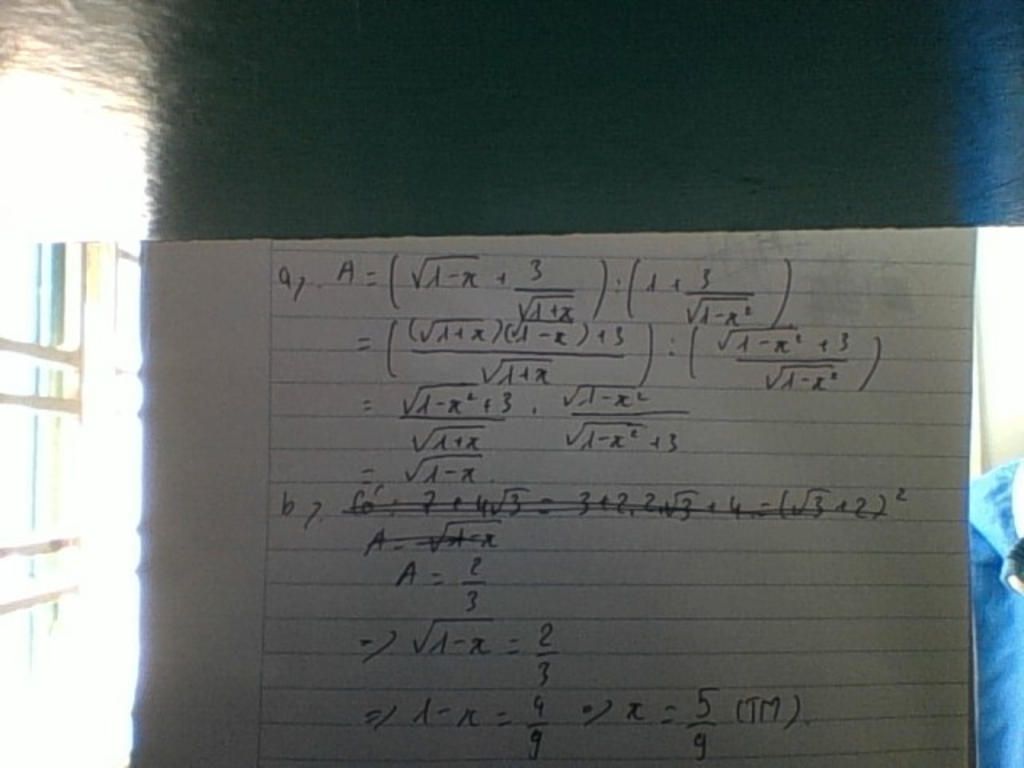 a, A = ( √1-x + 3/√1+x ) : ( 1 + 3/√1-x² )
= ( (√1+x)(1-x) + 3 / √1+x ) : ( √1-x² + 3 / √1-x² )
= √1-x² + 3 / √1+x . √1-x² / √1-x² + 3
= √1-x.
b, Có: 7 + 4√3 = 3 + 2.2√3 + 4 = (√3 + 2)²
A = √1-x
A = 2/3
=> √1-x = 2/3
=> 1-x = 4/9 => x = 5/9 (TM).